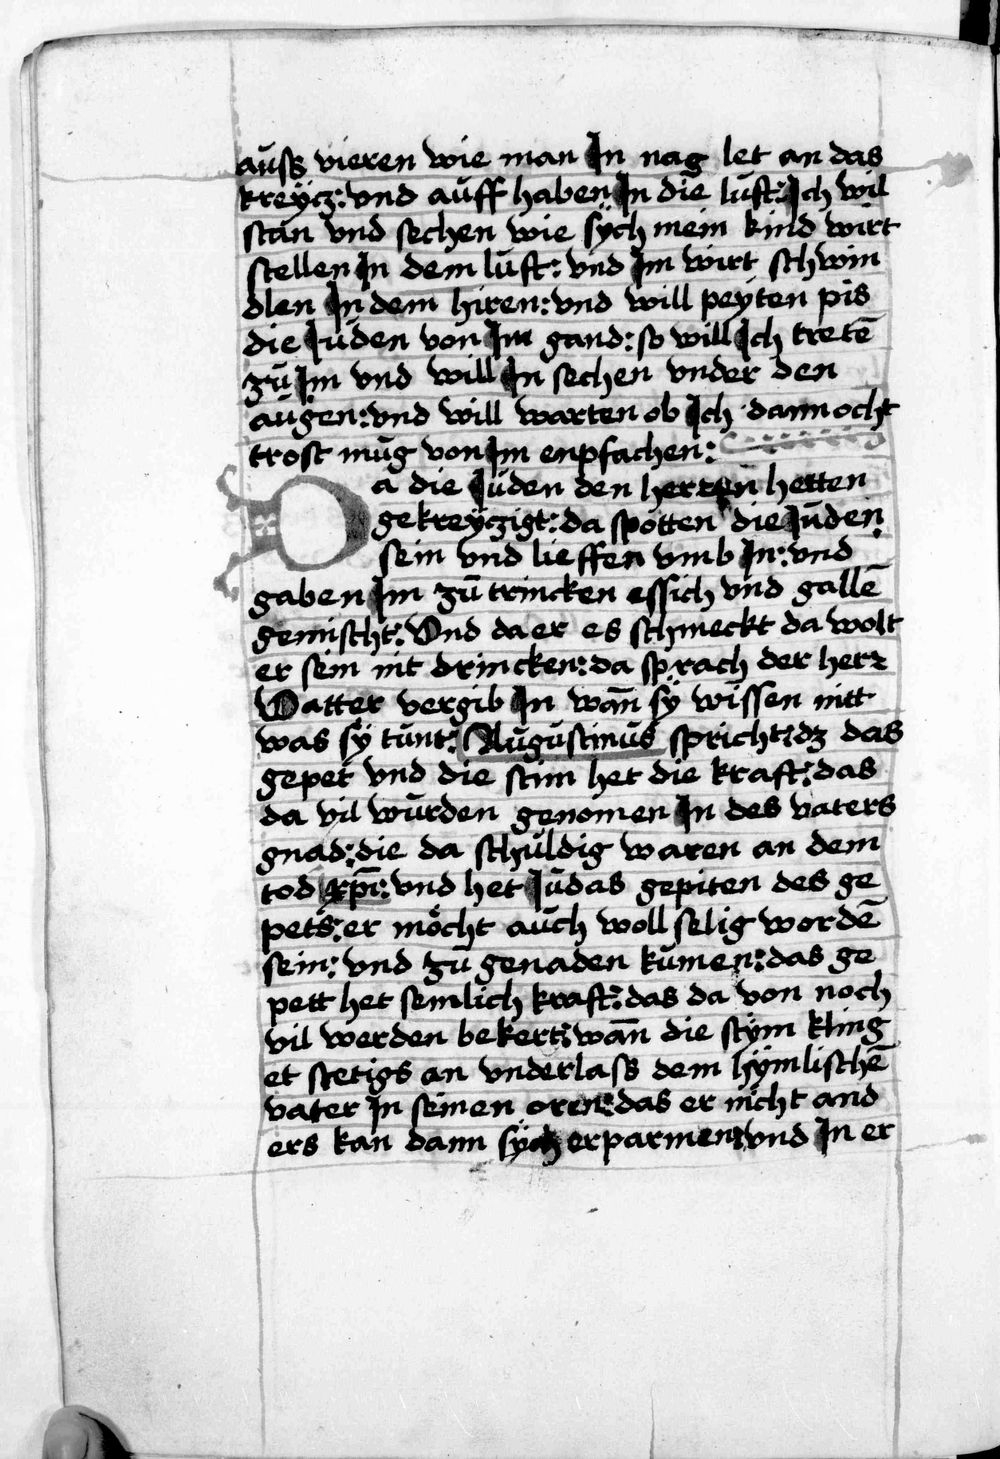 auſs vieren wie man In nag let an das
kreÿcz: vnd auff haben In die luft: Ich wil
stan vnd sechen wie sÿch mein kind wirt
stellen In dem luft: vnd Im wirt schwin
dlen In dem hiren: vnd will peÿten pis
die Iuden von Im gand: so will Ich tretē
zū Im vnd will In sechen vnder den
augen: vnd will warten ob Ich dannocht
trost mug von Im enpfachen:
Da die Iuden den herren hetten
gekreÿczigt: da spotten die Iuden
sein vnd lieffen vmb In: vnd
gaben Im zū trincken essich vnd gallē
gemischt: Vnd da er es schmeckt da wolt
er sein nit drincken: da sprach der herz
Vatter vergib In wān sÿ wissen nitt
was sÿ tunt: Augustinus spricht: dz das
gepet vnd die stim het die kraft: das
da vil wurden genomen In des vaters
gnad: die da schuldig waren an dem
tod xp̄i: vnd het Iudas gepiten des ge
pets: er möcht auch woll selig wordē
sein: vnd zū genaden kumen: das ge
pett het semlich kraft: das da von noch
vil werden bekert: wān die stÿm kling
et stetigs an vnderlaſs dem hÿmlischē
vater In seinen oren: das er nicht and
ers kan dann sÿch erparmen: vnd In er